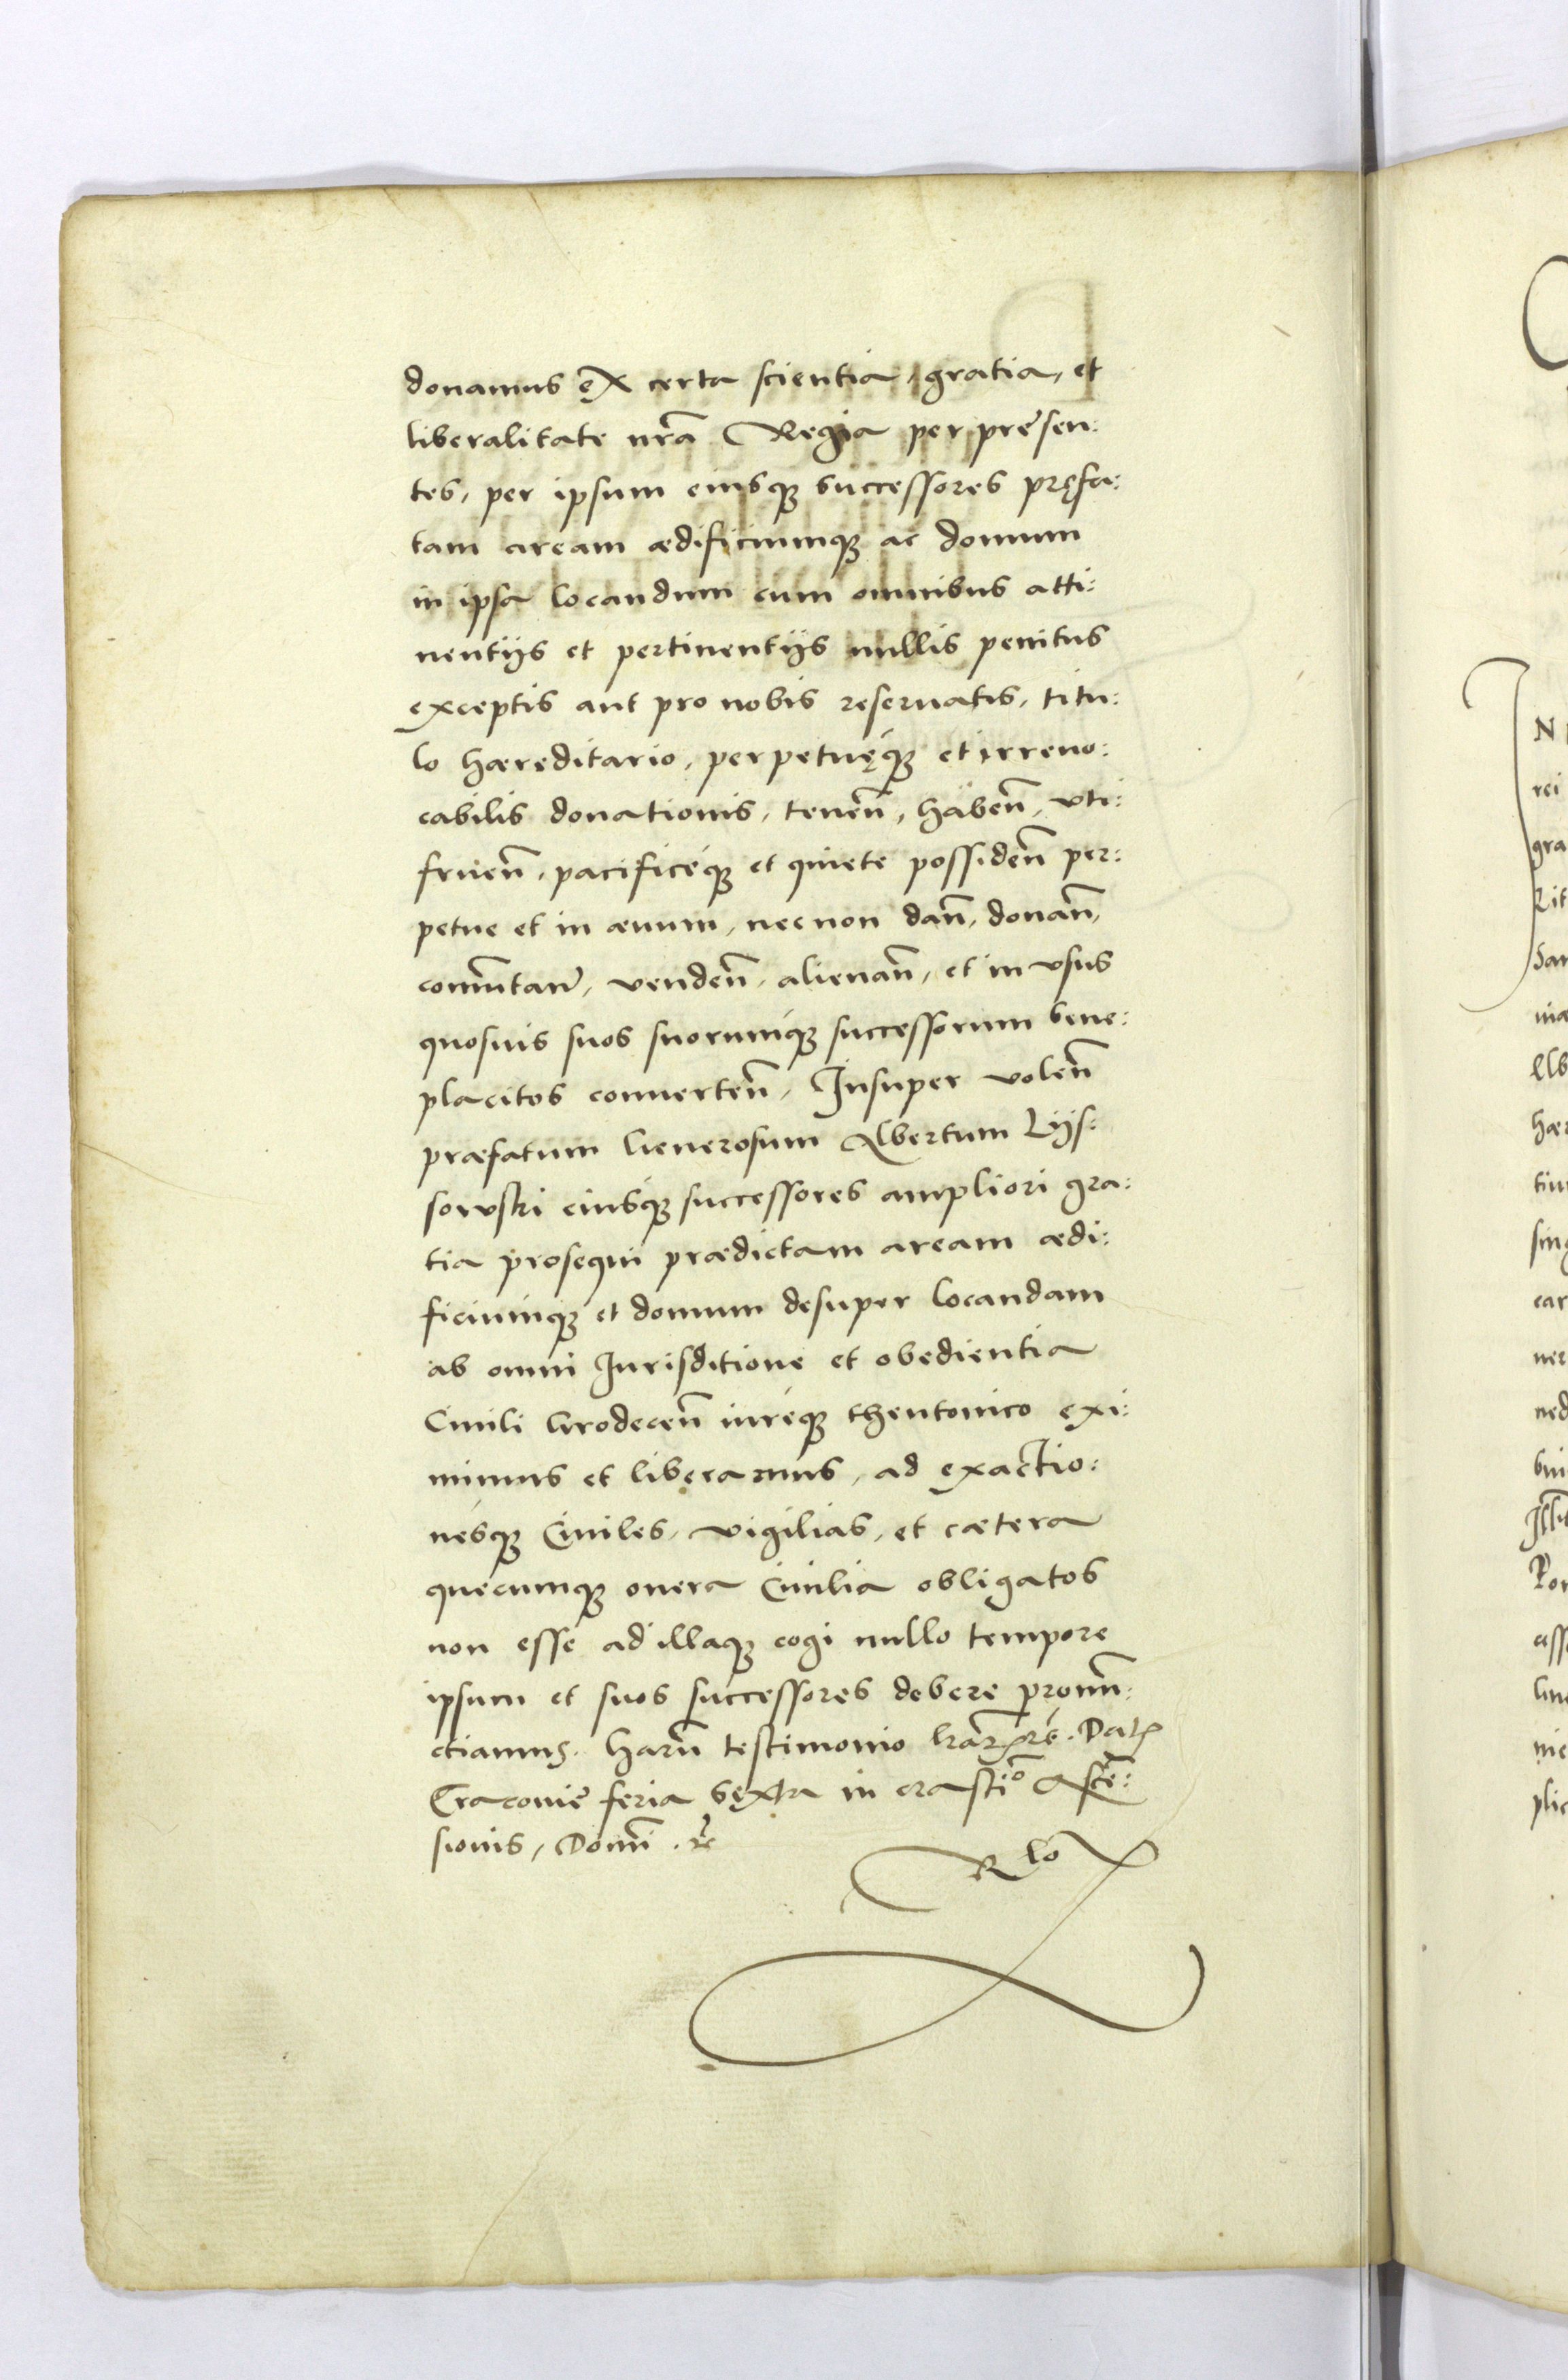 donamus ex certa scientia, gratia, et
liberalitate nr̃a Regia per presen:
tes, per ipsum eiusq; successores pręfa:
tam aream ædificiumq; ac domum
in ipsa locandum cum omnibus atti:
nentijs et pertinentijs nullis penitus
exceptis aut pro nobis reseruatis, titu:
lo hæreditario, perpetuęq; et irreuo:
cabilis donationis, teneñ, habeñ, vti:
frueñ, pacificéq; et quiete possideñ per:
petue et in æuum, necnon dañ, donañ,
com̃utañ, vendeñ, alienañ, et in vsus
quosuis suos suorumq; successorum bene:
placitos conuerteñ, Insuper voleñ
præfatum Generosum Albertum Lijs:
sowski eiusq; successores ampliori gra:
tia prosequi prædictam aream ædi:
ficiumq; et domum desuper locandam
ab omni Jurisditione et obedientia
Ciuili Grodeceñ iureq; theutonico exi:
mimus et liberamus, ad exactio:
nesq; Ciuiles, vigilias, et cætera
quecumq; onera Ciuilia obligatos
non esse ad illaq; cogi nullo tempore
ipsum et suos successores debere pronũ:
ctiamus. harũ testimonio Dat
Cracouie feria sexta in crastĩo Ascẽ:
sionis, Domĩ. r̃c